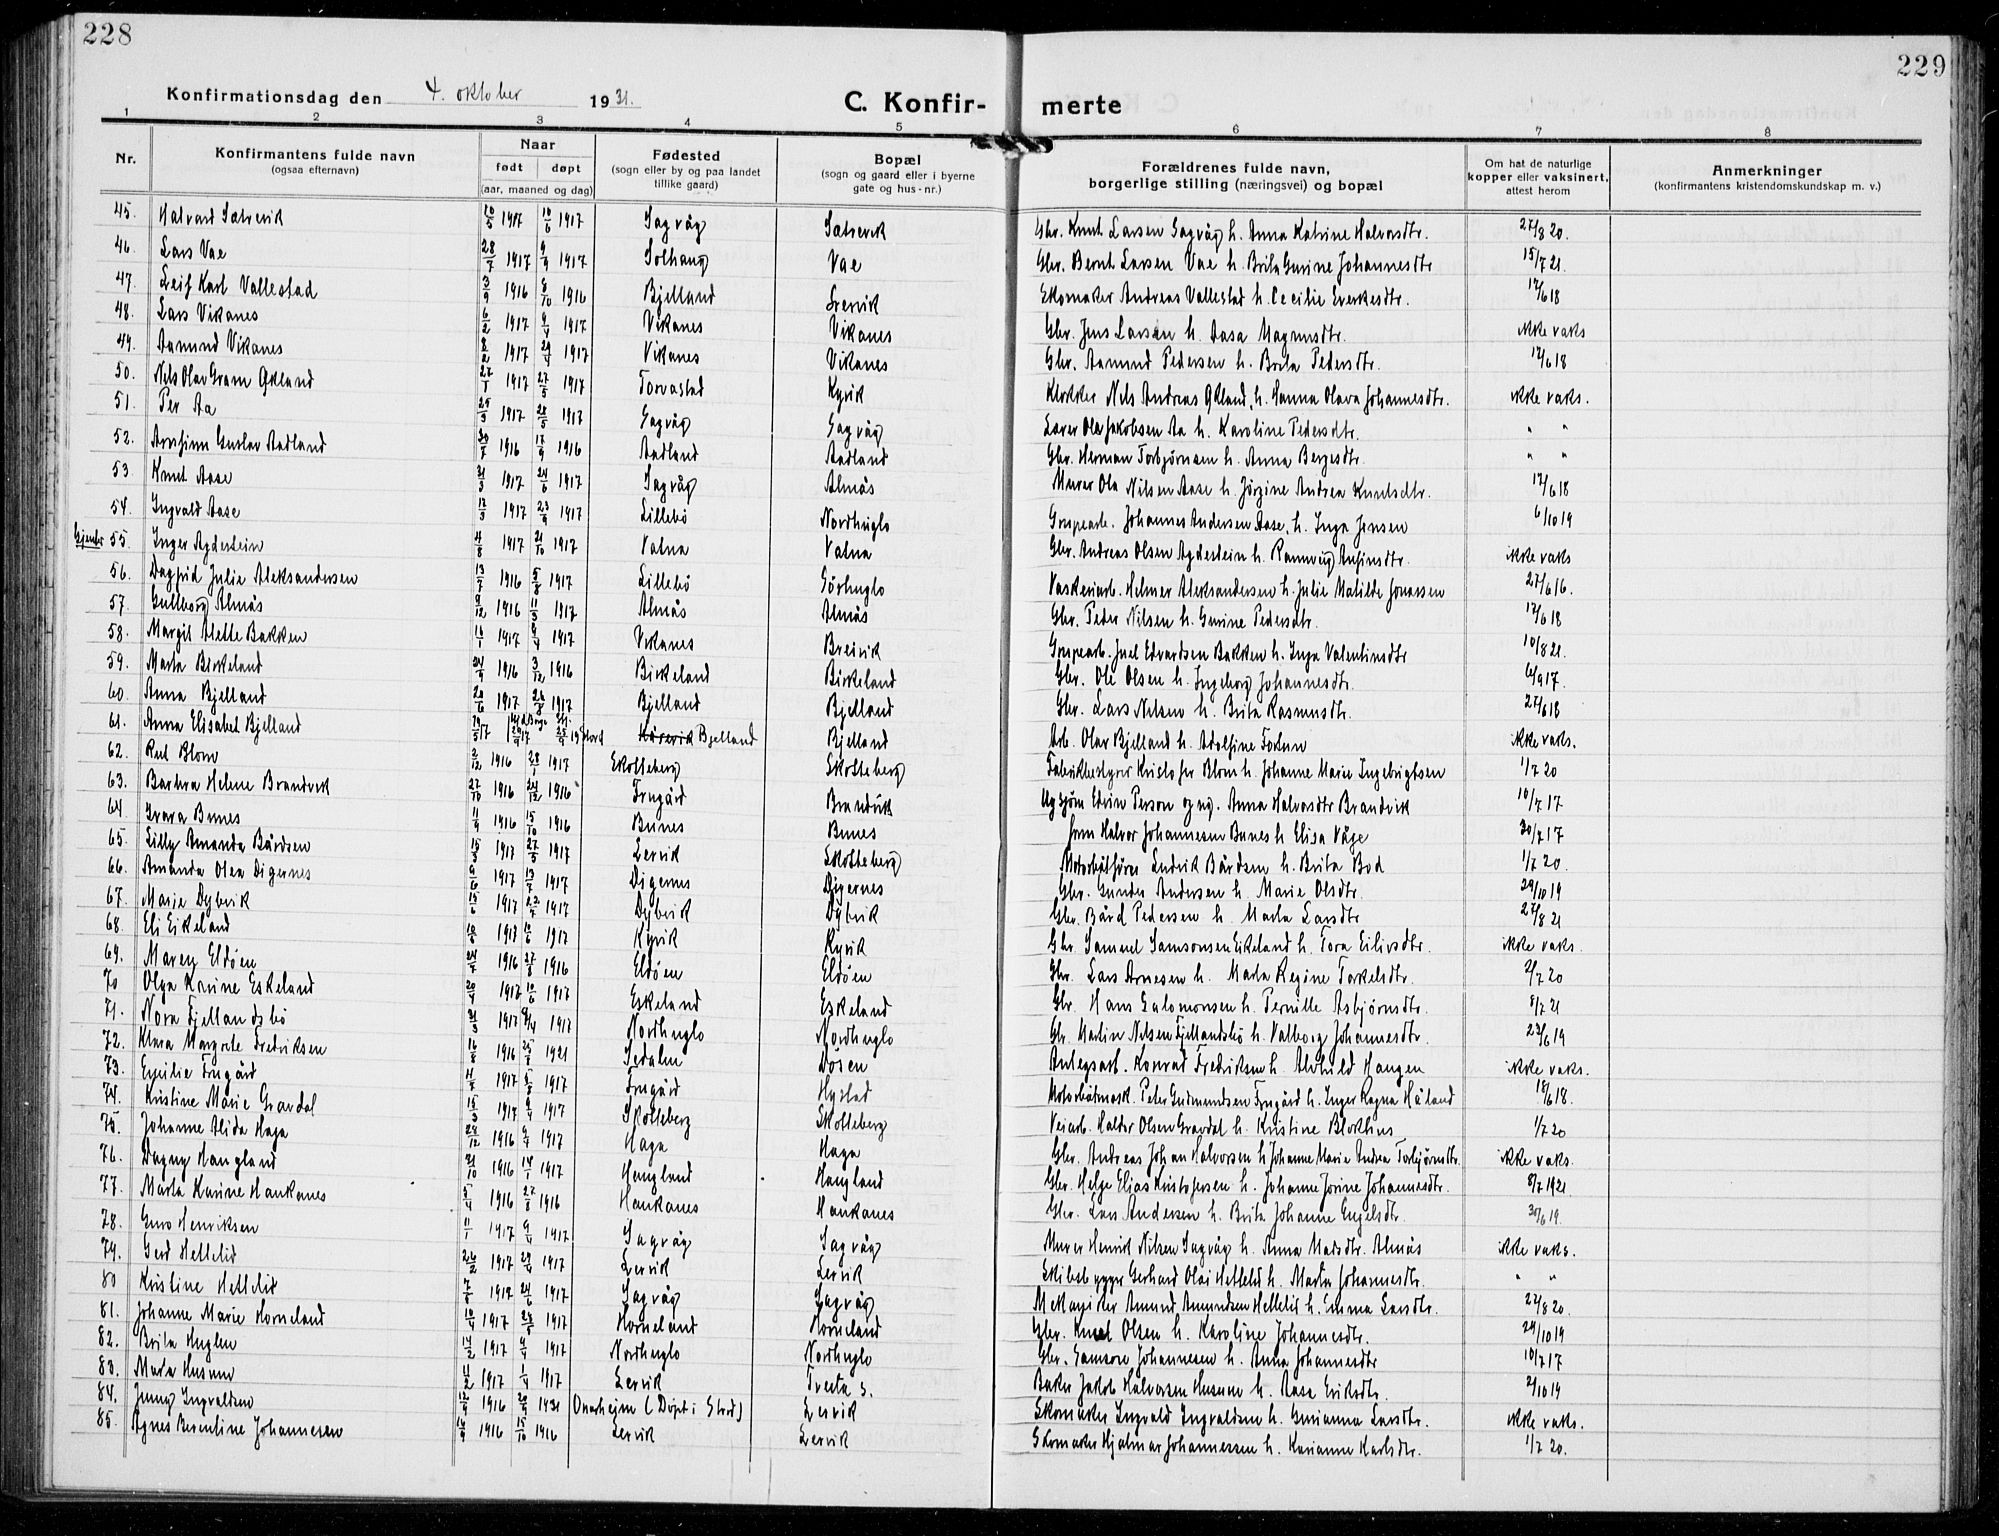 228
229
Konfirmationsdag den 4. oktober 1931.
C. Konfir- merte
1 2 3 4 5 6 7 8
Nr.
Konfirmantens fulde navn
(ogsaa efternavn)
Naar
født døpt
(aar, maaned og dag)
Fødested
(sogn eller by og paa landet
tillike gaard)
Bopæl
(sogn og gaard eller i byerne
gate og hus-nr.)
Forældrenes fulde navn,
borgerlige stilling (næringsvei) og bopæl
Om hat de naturlige
kopper eller vaksinert,
attest herom
Anmerkninger
(konfirmantens kristendomskundskap m. v.)
45. Halvard Sætrevik 10/5 1917 10/6 1917 Sagvåg Sætrevik Gbr. Knut Larsen Sagvåg h. Anna Katrine Halvorsdtr. 27/8 20.
46. Lars Vae 28/7 1917 9/9 1917 Solhaug Vae Gbr. Bernt Larsen Vae h. Brita Gurine Johannesdtr 15/7 21.
47. Leif Karl Vallestad 3/9 1916 8/10 1916 Bjelland Lervik Skomaker Andreas Vallestad h. Cecilie Sverkesdtr. 17/6 18
48. Lars Vikanes 6/2 1917 9/4 1917 Vikanes Vikanes Gbr. Jens Larsen h. Aasa Magnusdtr. ikke vaks
49. Aamund Vikanes 8/2 1917 29/4 1917 Vikanes Vikanes Gbr. Aamund Pedersen h. Brita Pedersdtr. 17/6 18
50. Nils Olav Gram Økland 27/1 1917 27/5 1917 Torvastad Kyvik Klokker Nils Andreas Økland, h. Hanna Olava Johannesdtr. ikke vaks.
51. Per Aa 25/3 1917 28/5 1917 Sagvåg Sagvåg Lærer Ole Jakobsen Aa h. Karoline Pedersdtr. " "
52. Arnfinn Gustav Aadland 30/7 1916 17/9 1916 Aadland Aadland Gbr. Herman Torbjørnsen h. Anna Bergesdtr. " "
53. Knut Aase 31/3 1917 24/6 1917 Sagvåg Almås Murer Ola Nilsen Aase h. Jörgine Andrea Knutsdtr. 17/6 18
54. Ingvald Aase 12/3 1917 23/9 1917 Lillebö Nordhuglo Grupearb. Johannes Andersen Aase, h. Inga Jensen 6/10 19
Gjenter 55. Inger Agdestein 4/8 1917 21/10 1917 Valna Valna Gbr. Andreas Olsen Agdestein h. Rannveig Anfinsdtr. ikke vaks
56. Dagfrid Julie Aleksandersen 13/7 1916 5/8 1917 Lillebö Sörhuglo Vaskeriarb. Helmer Aleksandersen h. Julie Matilde Jonassen 27/6 16.
57. Gullborg Almås 9/12 1916 11/3 1917 Almås Almås Gbr. Peder Nilsen h. Gurine Pedersdtr. 17/6 18
58. Margit Alette Bakken 16/1 1917 9/4 1917 Vikanes Breivik Grupearb. Juel Edvardsen Bakken h. Inga Valentinsdtr 10/8 21.
59. Marta Birkeland 24/9 1916 3/12 1916 Birkeland Birkeland Gbr. Ole Olsen h. Ingeborg Johannesdtr. 6/9 17.
60. Anna Bjelland 20/6 1917 26/8 1917 Bjelland Bjelland Gbr. Lars Nilsen h. Brita Rasmusdtr. 27/6 18
61. Anna Elisabet Bjelland 29/5 17 Bjelland Bjelland Arb. Olav Bjelland h. Adolfine Fortun ikke vaks.
62. Rut Blom 2/12 1916 28/1 1917 Skotteberg Skotteberg Fabrikbestyrer Kristofer Blom h. Johanne Marie Ingebrigtsen 1/7 20
63. Barbra Helene Brandvik 27/10 1916 24/12 1916 Frugård Brandvik Ug sjøm Edvin Person og ug. Anna Halvorsdtr Brandvik 10/7 17
64. Ivara Bunes 11/9 1916 15/10 1916 Bunes Bunes Jorm Halvor Johannesen Bunes h Elisa Våge 30/7 17
65. Lilly Amanda Bårdsen 15/3 1917 27/5 1917 Lervik Skotteberg Motorbåtförer Ludvik Bårdsen h. Brita Bod 1/7 20.
66. Amanda Olea Digernes 9/6 1917 13/7 1917 Digernes Digernes Gbr. Gunder Andersen h. Marie Olsdtr. 29/10 19
67. Marie Dybvik 15/6 1917 22/7 1917 Dybvik Dybvik Gbr. Bård Pedersen h. Marta Larsdtr 27/8 21
68. Eli Eikeland 1917 10/6 1917 Kyvik Kyvik Gbr. Samuel Samsonsen Eikeland h. Tora Eilivsdtr. ikke vaks.
69. Maren Eldöen 24/7 1916 27/8 1916 Eldöen Eldöen Gbr. Lars Arnesen h. Marta Regine Torkelsdtr. 2/7 20
70 Olga Karine Eskeland 20/4 1917 10/6 1917 Eskeland Eskeland Gbr. Hans Salomonsen h. Pernille Asbjørnsdtr. 8/7 21
71. Nora Fjellandsbö 31/3 1917 9/4 1917 Nordhuglo Nordhuglo Gbr. Martin Nilsen Fjellandsbö h. Valborg Johannesdtr. 23/6 19
72. Klara Margrete Fredriksen 16/8 1916 25/8 1921 Dösen Anlegsarb. Konrad Fredriksen h. Alvhild Haugen ikke vaks.
73. Emilie Frugård 11/7 1917 1917 Frugård Hystad Motorbåtmask. Peter Gudmundsen Frugård h. Inger Ragna Håland 18/6 18.
74. Kristine Marie Gravdal 15/3 1917 9/4 1917 Skotteberg Skotteberg Veiarb. Haldor Olsen Gravdal h. Kristine Blokhus 1/7 20
75. Johanne Alida Haga 24/12 1916 9/4 1917 Haga Haga Gbr. Andreas Johan Halvorsen h Johanne Marie Andrea Torbjørnsdtr. ikke vaks.
76. Dagny Haugland 31/10 1916 14/1 1917 Haugland Haugland Gbr. Helge Elias Kristofersen h. Johanne Jorine Johannesdtr. 8/7 1921
77. Marta Karine Haukanes 5/4 1916 27/8 1916 Haukanes Haukanes Gbr. Lars Andersen h. Brita Johanne Engelsdtr. 30/6 19.
78. Guro Henriksen 11/1 1917 9/4 1917 Sagvåg Sagvåg Murer Henrik Nilsen Sagvåg h. Anna Madsdtr. Almås ikke vaks.
79. Gerd Hettelid 26/2 1917 29/4 1917 Lervik Lervik Skibsbygger Gerhard Olai Hettelid h. Marta Johannesdtr. " "
80 Kristine Hettelid 7/5 1917 24/6 1917 Sagvåg Sagvåg Mekaniker Amund Amundsen Hettelid h. Emma Larsdtr. 27/8 20.
81. Johanne Marie Horneland 10/4 1917 28/5 1917 Horneland Horneland Gbr. Knut Olsen h. Karoline Johannesdtr. 29/10 19
82. Brita Huglen 14/2 1917 9/4 1917 Nordhuglo Nordhuglo Gbr. Samson Johannesen h. Anna Johannesdtr 10/7 17
83. Marta Husum 11/2 1917 1/4 1917 Lervik Tveita s. Baker Jakob Halvorsen Husum h. Aase Eriksdtr. 2/10 19
84. Jenny Ingvaldsen 1916 Onarheim (Døpt i Stord) Lervik Skomaker Ingvald Ingvaldsen h. Gurianna Larsdtr. ikke vaks.
85. Agnes Berentine Johannesen 16/9 1916 15/10 1916 Lervik Lervik Skomaker Hjalmar Johannessen h. Karianne Karlsdtr. 1/7 20.